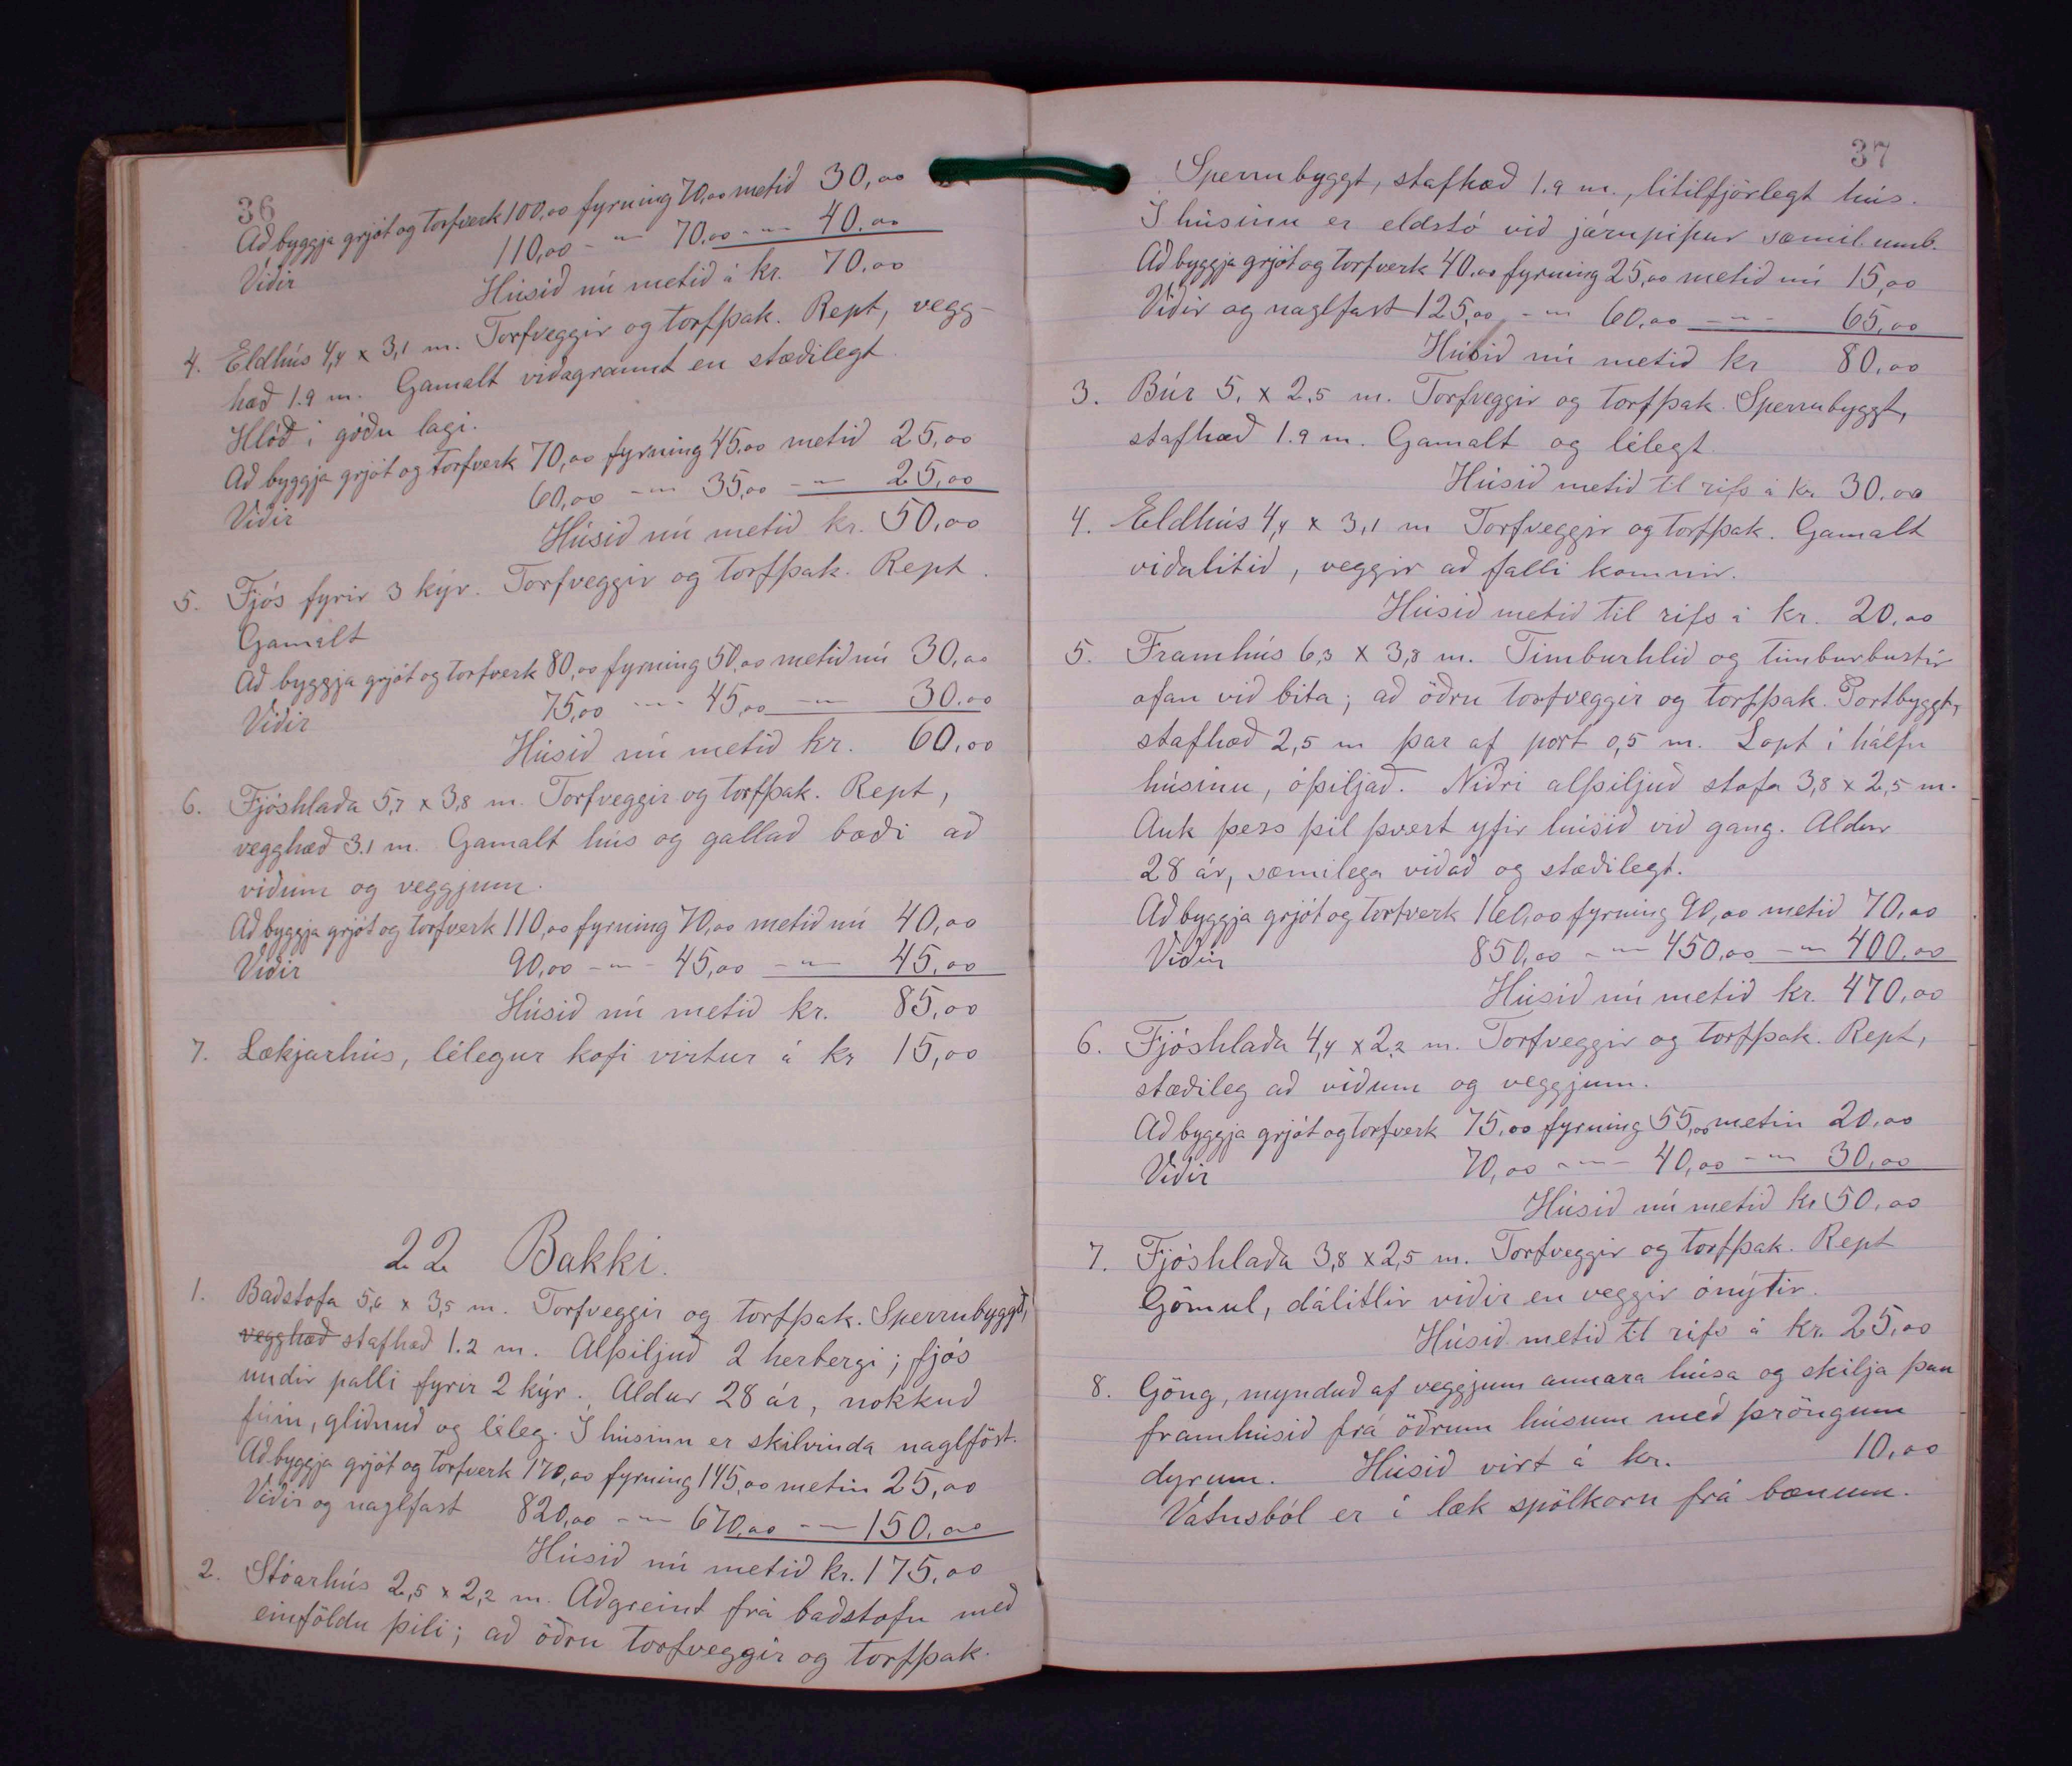 36
Að byggja grjót og torfverk 100,00 fyrning 70,00 metið 30,00
Viðir 110,00 -"- 70.00 -"- 40.00
Húsið nú metið á kr. 70,00
4. Eldhús 4,4 x 3,1 m. Torfveggir og torfþak. Rept, vegg-
hæð 1.9 m. Gamalt viðagrannt en stæðilegt.
Hlóð í góðu lagi.
Að byggja grjót og torfverk 70,00 fyrning 45.00 metið 25,00
Viðir 60,00 -"- 35,00 -"- 25,00
Húsið nú metið kr. 50,00
5. Fjós fyrir 3 kýr. Torfveggir og torfþak. Rept.
Gamalt
Að byggja grjót og torfverk 80,00 fyrning 50,00 metið nú 30,00
Viðir 75,00 -"- 45,00 -"- 30.00
Húsið nú metið kr. 60,00
6. Fjóshlaða 5,7 x 3,8 m. Torfveggir og torfþak. Rept,
vegghæð 3.1 m. Gamalt hús og gallað bæði að
viðum og veggjum.
Að byggja grjót og torfverk 110,00 fyrning 70,00 metið nú 40,00
Viðir 90,00 -"- 45,00 -"- 45,00
Húsið nú metið kr. 85,00
7. Lækjarhús, lélegur kofi virtur á kr 15,00
22 Bakki.
1. Baðstofa 5,6 x 3,5 m. Torfveggir og torfþak. Sperrubyggð,
vegghæð stafhæð 1.2 m. Alþiljuð 2 herbergi; fjós
undir palli fyrir 2 kýr. Aldur 28 ár, nokkuð
fúin, gliðnuð og léleg. Í húsinu er skilvinda naglföst.
Að byggja grjót og torfverk 170,00 fyrning 145,00 metin 25,00
Viðir og naglfast 820,00 -"- 670,00 -"- 150,00
Húsið nú metið kr. 175,00
2. Stóarhús 2,5 x 2,2 m. Aðgreint frá baðstofu með
einföldu þili; að öðru torfveggir og torfþak.
37
Sperrubyggt, stafhæð 1.9 m., lítilfjörlegt hús.
Í húsinu er eldstó við járnpípur sæmil. umb.
Að byggja grjót og torfverk 40.00 fyrning 25,00 metið nú 15,00
Viðir og naglfast 125,00 -"- 60,00 -"- 65,00
Húsið nú metið kr 80,00
3. Búr 5, x 2.5 m. Torfveggir og torfþak. Sperrubyggt,
stafhæð 1.9 m. Gamalt og lélegt.
Húsið metið til rifs á kr. 30.00
4. Eldhús 4,4 x 3,1 m Torfveggir og torfþak. Gamalt
viðalítið, veggir að falli komnir.
Húsið metið til rifs á kr. 20,00
5. Framhús 6,3 x 3,8 m. Timburhlið og timburbustir
ofan við bita; að öðru torfveggir og torfþak. Portbyggt,
stafhæð 2,5 m þar af port 0,5 m. Lopt í hálfu
húsinu, óþiljað. Niðri alþiljuð stofa 3,8 x 2,5 m.
Auk þess þil þvert yfir húsið við gang. Aldur
28 ár, sæmilega viðað og stæðilegt.
Að byggja grjót og torfverk 160,00 fyrning 90,00 metið 70,00
Viðir 850,00 -"- 450,00 -"- 400,00
Húsið nú metið kr. 470,00
6. Fjóshlaða 4,4 x 2,2 m. Torfveggir og torfþak. Rept,
stæðileg að viðum og veggjum.
Að byggja grjót og torfverk 75,00 fyrning 55,00 metin 20,00
Viðir 70,00 -"- 40,00 -"- 30,00
Húsið nú metið kr 50,00
7. Fjóshlaða 3,8 x 2,5 m. Torfveggir og torfþak. Rept
Gömul, dálitlir viðir en veggir ónýtir.
Húsið metið til rifs á kr. 25,00
8. Göng, mynduð af veggjum annara húsa og skilja þau
framhúsið frá öðrum húsum með þröngum
dyrum. Húsið virt á kr. 10,00
Vatnsból er í læk spölkorn frá bænum.